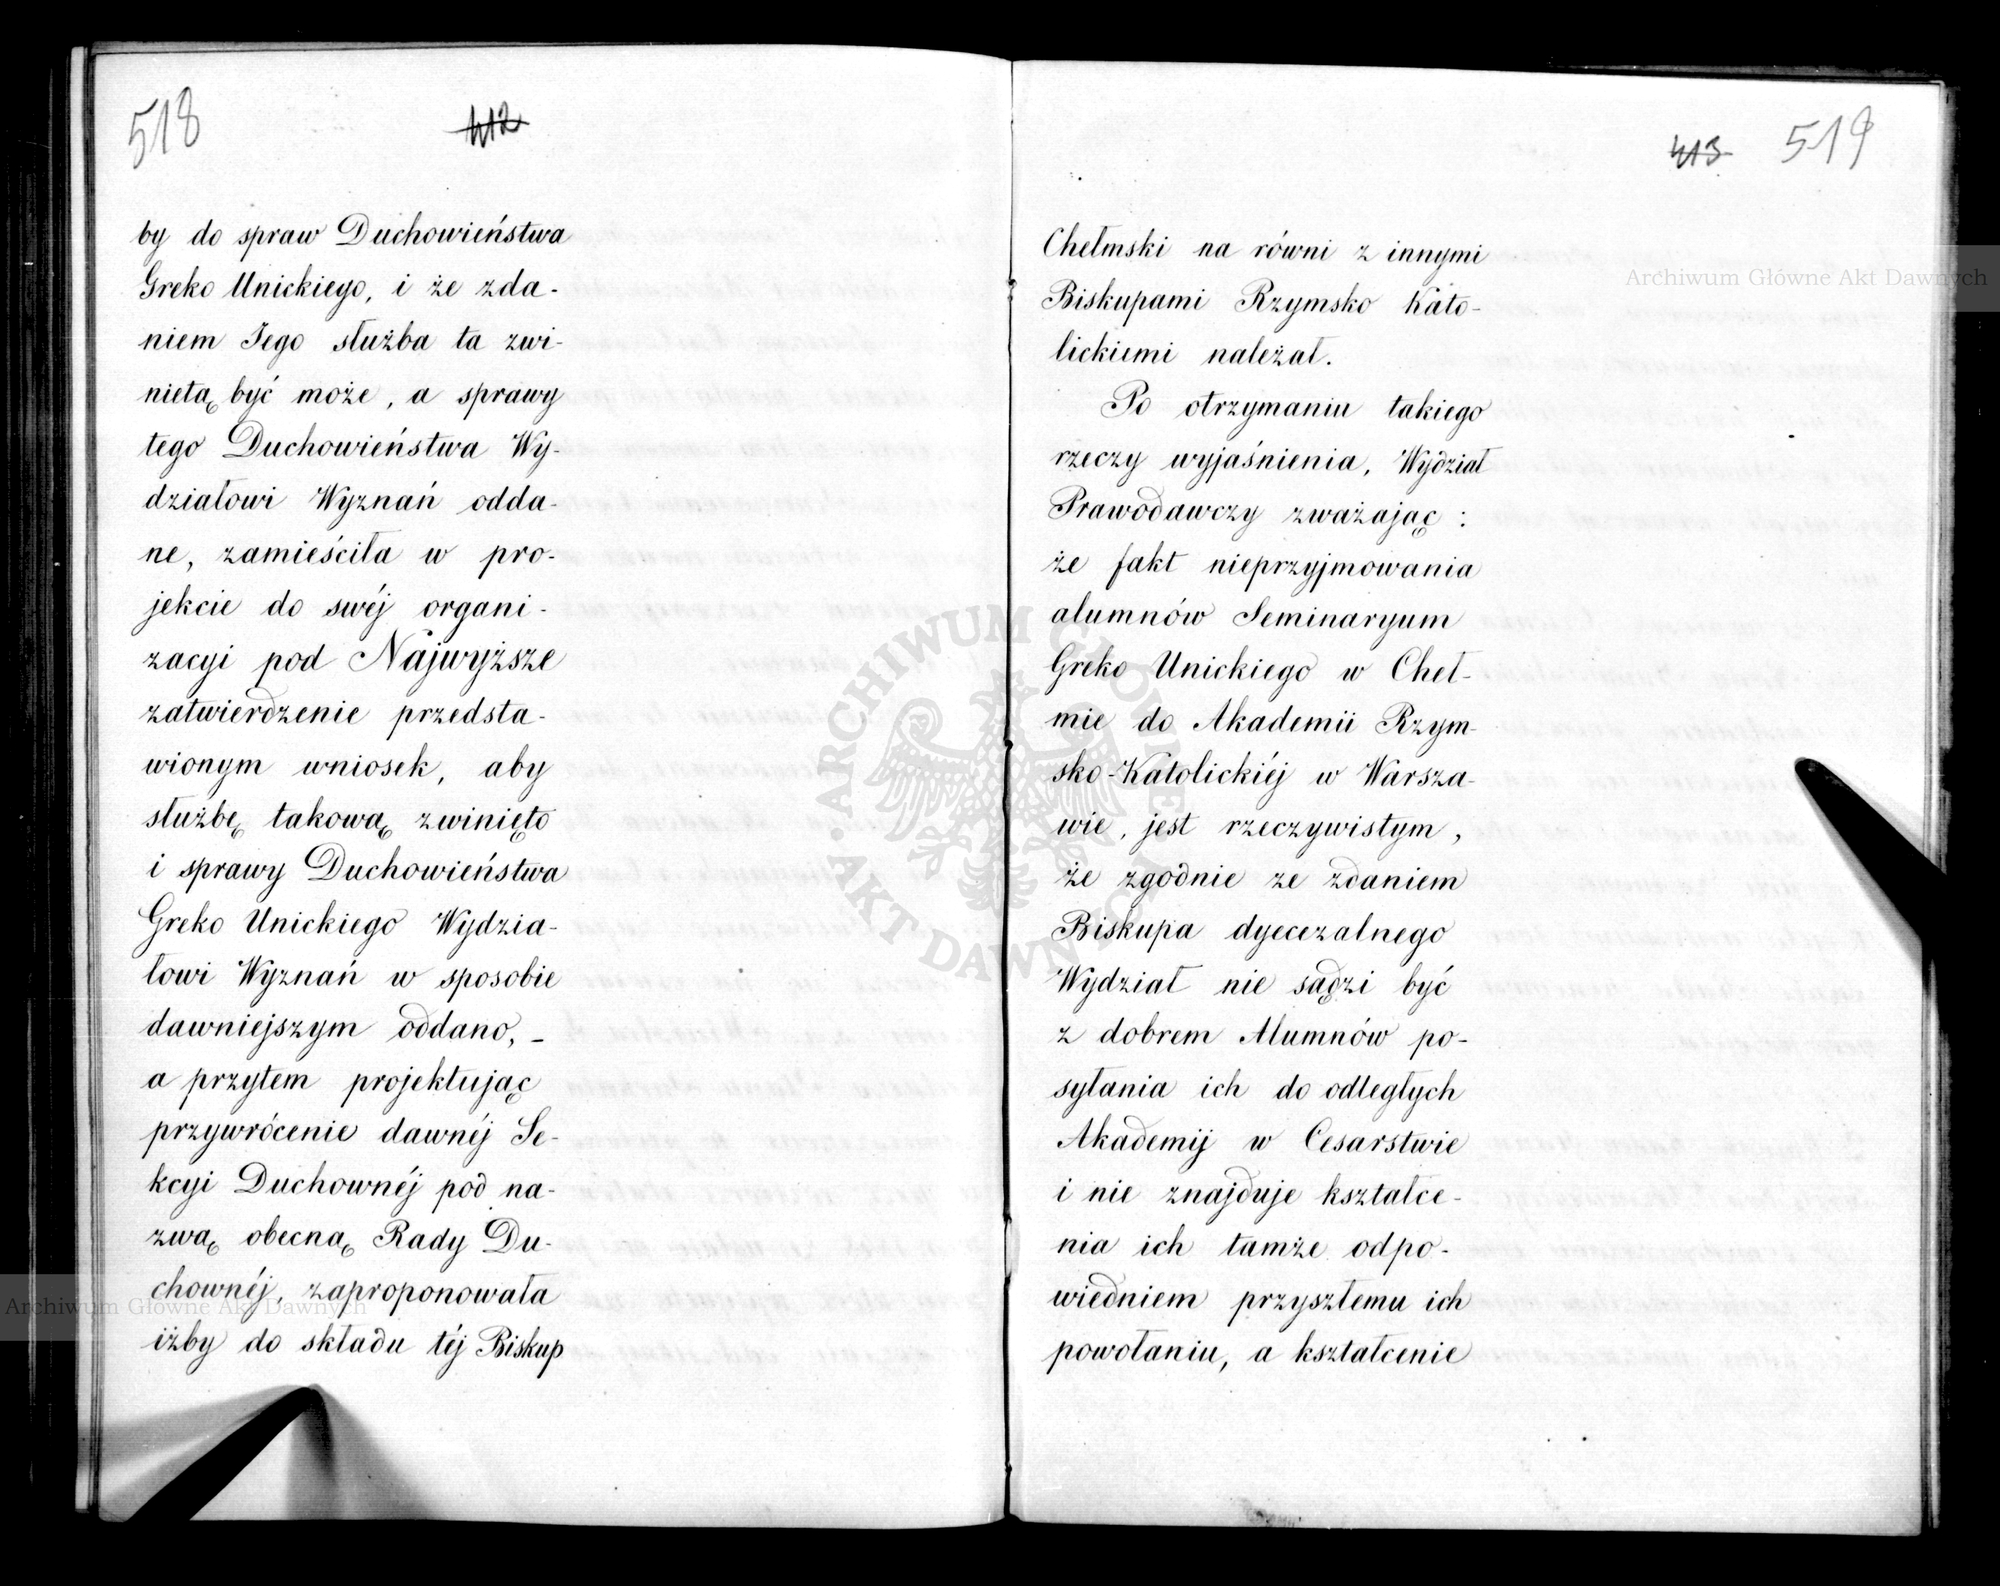 518
412
by do spraw Duchowieństwa
Greko Unickiego, i że zda-
niem Jego służba ta zwi-
niętą być może, a sprawy
tego Duchowieństwa Wy-
działowi Wyznań odda-
ne, zamieściła w pro-
jekcie do swéj organi-
zacyi pod Najwyższe
zatwierdzenie przedsta-
wionym wniosek, aby
służbę takową zwinięto
i sprawy Duchowieństwa
Greko Unickiego Wydzia-
łowi Wyznań w sposobie
dawniejszym oddano, -
a przytem projektując
przywrócenie dawnéj Se-
kcyi Duchownéj pod na-
zwą obecną Rady Du-
chownéj, zaproponowała
iżby do składu téj Biskup
413 519
Chełmski na równi z innymi
Biskupami Rzymsko Kato-
lickiemi należał.
Po otrzymaniu takiego
rzeczy wyjaśnienia, Wydział
Prawodawczy zważając :
że fakt nieprzyjmowania
alumnów Seminaryum
Greko Unickiego w Cheł-
mie do Akademii Rzym-
sko-Katolickiéj w Warsza-
wie, jest rzeczywistym,
że zgodnie ze zdaniem
Biskupa dyecezalnego
Wydział nie sądzi być
z dobrem Alumnów po-
syłania ich do odległych
Akademij w Cesarstwie
i nie znajduje kształce-
nia ich tamże odpo-
wiedniem przyszłemu ich
powołaniu, a kształcenie
Archiwum Główne Akt Dawnych
Archiwum Główne Akt Dawnych
ARCHIWUM GŁÓWNE AKT DAWNYCH